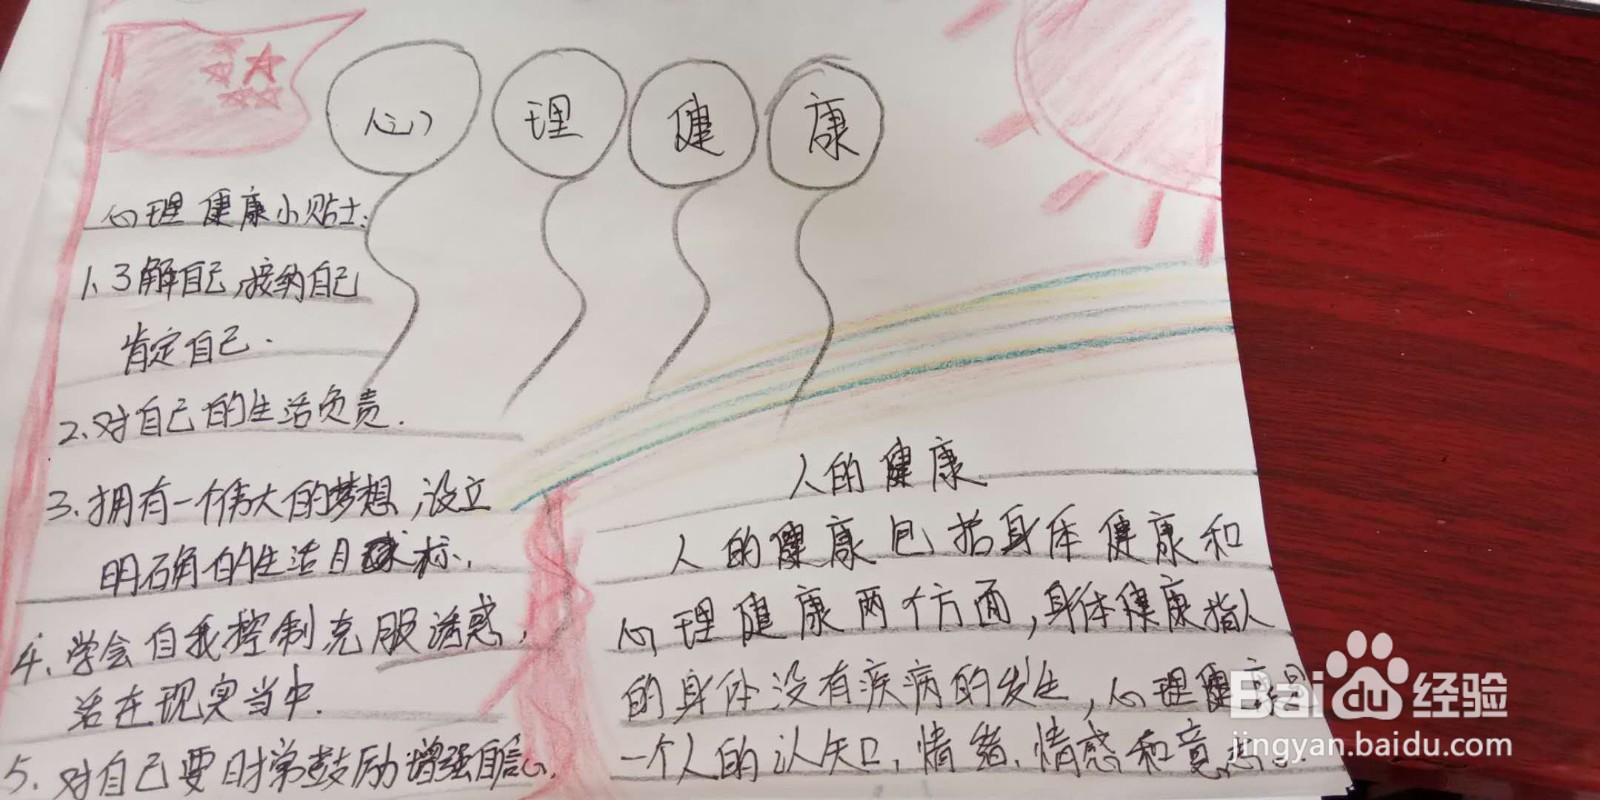 心理健康
心理健康小贴士:
1、了解自己,接纳自己
肯定自己.
2、对自己的生活负责.
3、拥有一个伟大的梦想,设立
明确的生活目标.
4、学会自我控制克服诱惑,
活在现实当中.
5、对自己要时常鼓励增强自信心.
人的健康
人的健康包括身体健康和
心理健康两个方面,身体健康指人
的身体没有疾病的发生,心理健康
一个人的认知,情绪、情感和意志
Baidu经验
jingyan.baidu.com